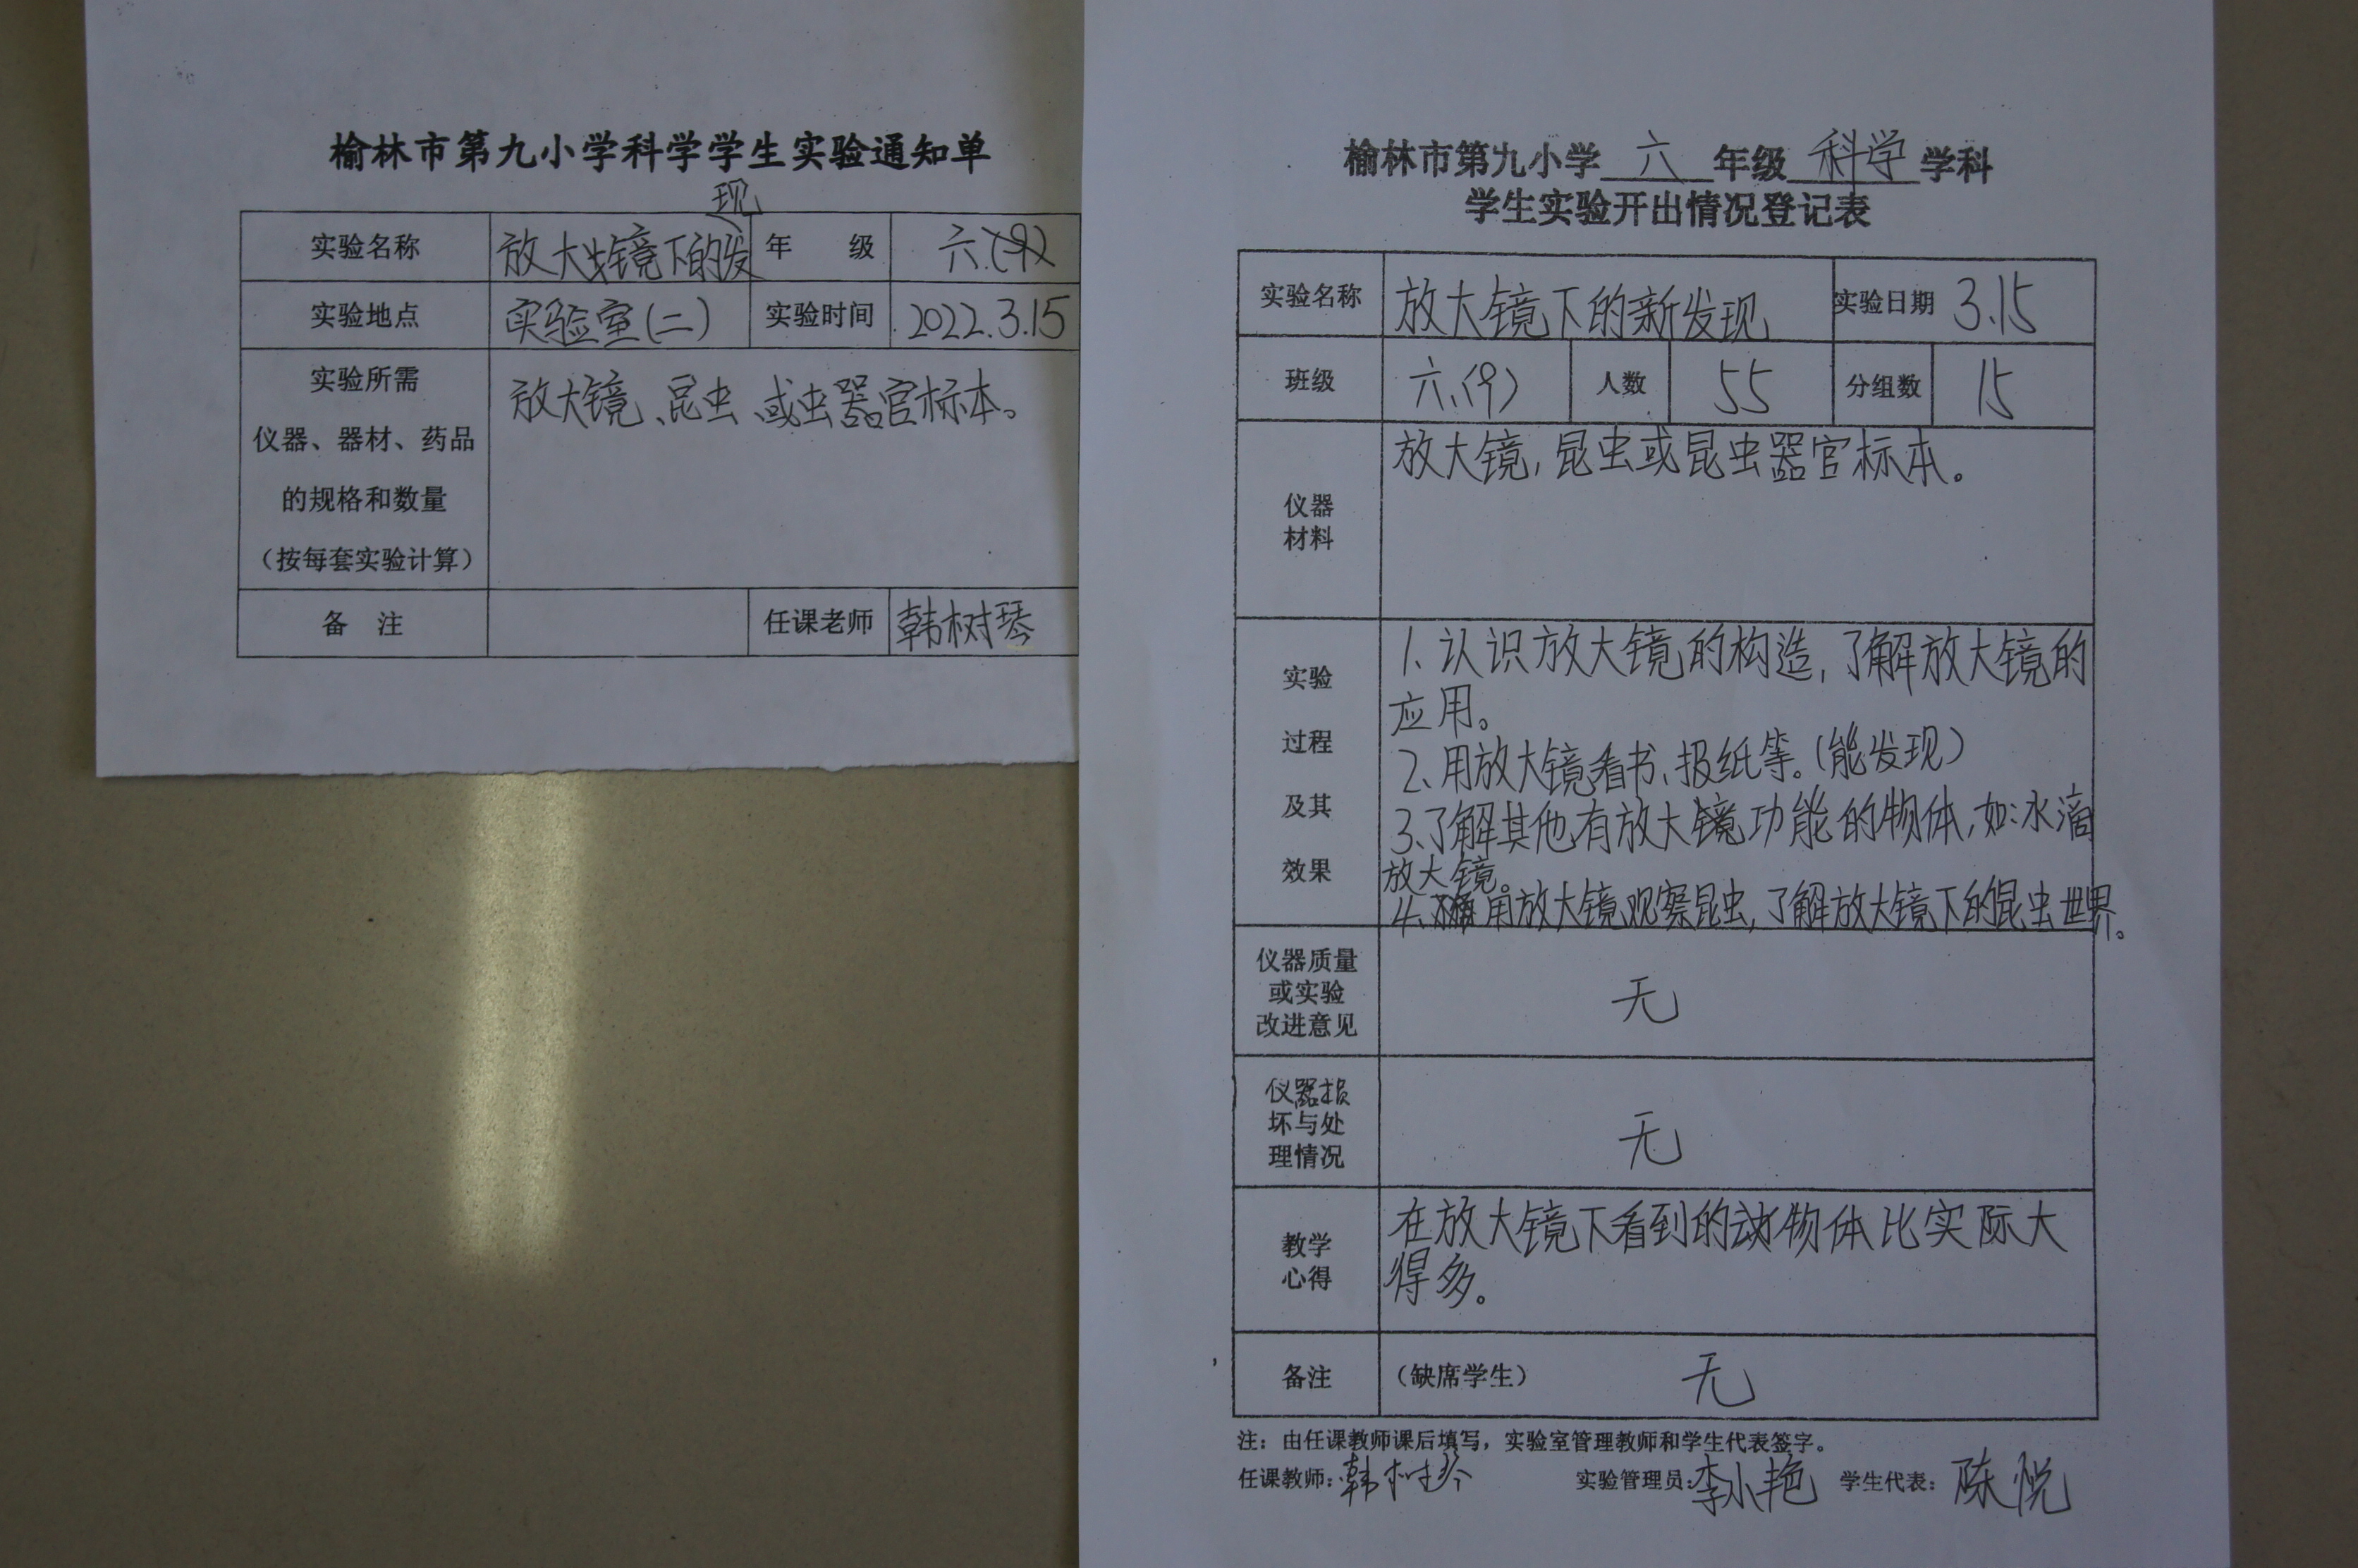 榆林市第九小学科学学生实验通知单
现
实验名称 放大镜下的发 年 级 六.(9)
实验地点 实验室(二) 实验时间 2022.3.15
实验所需
仪器、器材、药品
的规格和数量
(按每套实验计算)
放大镜、昆虫、或虫器官标本。
备 注 任课老师 韩树琴
榆林市第九小学 六 年级 科学 学科
学生实验开出情况登记表
实验名称 放大镜下的新发现 实验日期 3.15
班级 六.(9) 人数 55 分组数 15
仪器
材料
放大镜,昆虫或昆虫器官标本。
实验
过程
及其
效果
1、认识放大镜的构造,了解放大镜的
应用。
2、用放大镜看书、报纸等。(能发现)
3、了解其他有放大镜功能的物体,如:水滴
放大镜。
4、用放大镜观察昆虫,了解放大镜下的昆虫世界。
仪器质量
或实验
改进意见
无
仪器损
坏与处
理情况
无
教学
心得
在放大镜下看到的物体比实际大
得多。
备注 (缺席学生) 无
注:由任课教师课后填写,实验室管理教师和学生代表签字。
任课教师:韩树琴 实验管理员:李小艳 学生代表:陈悦